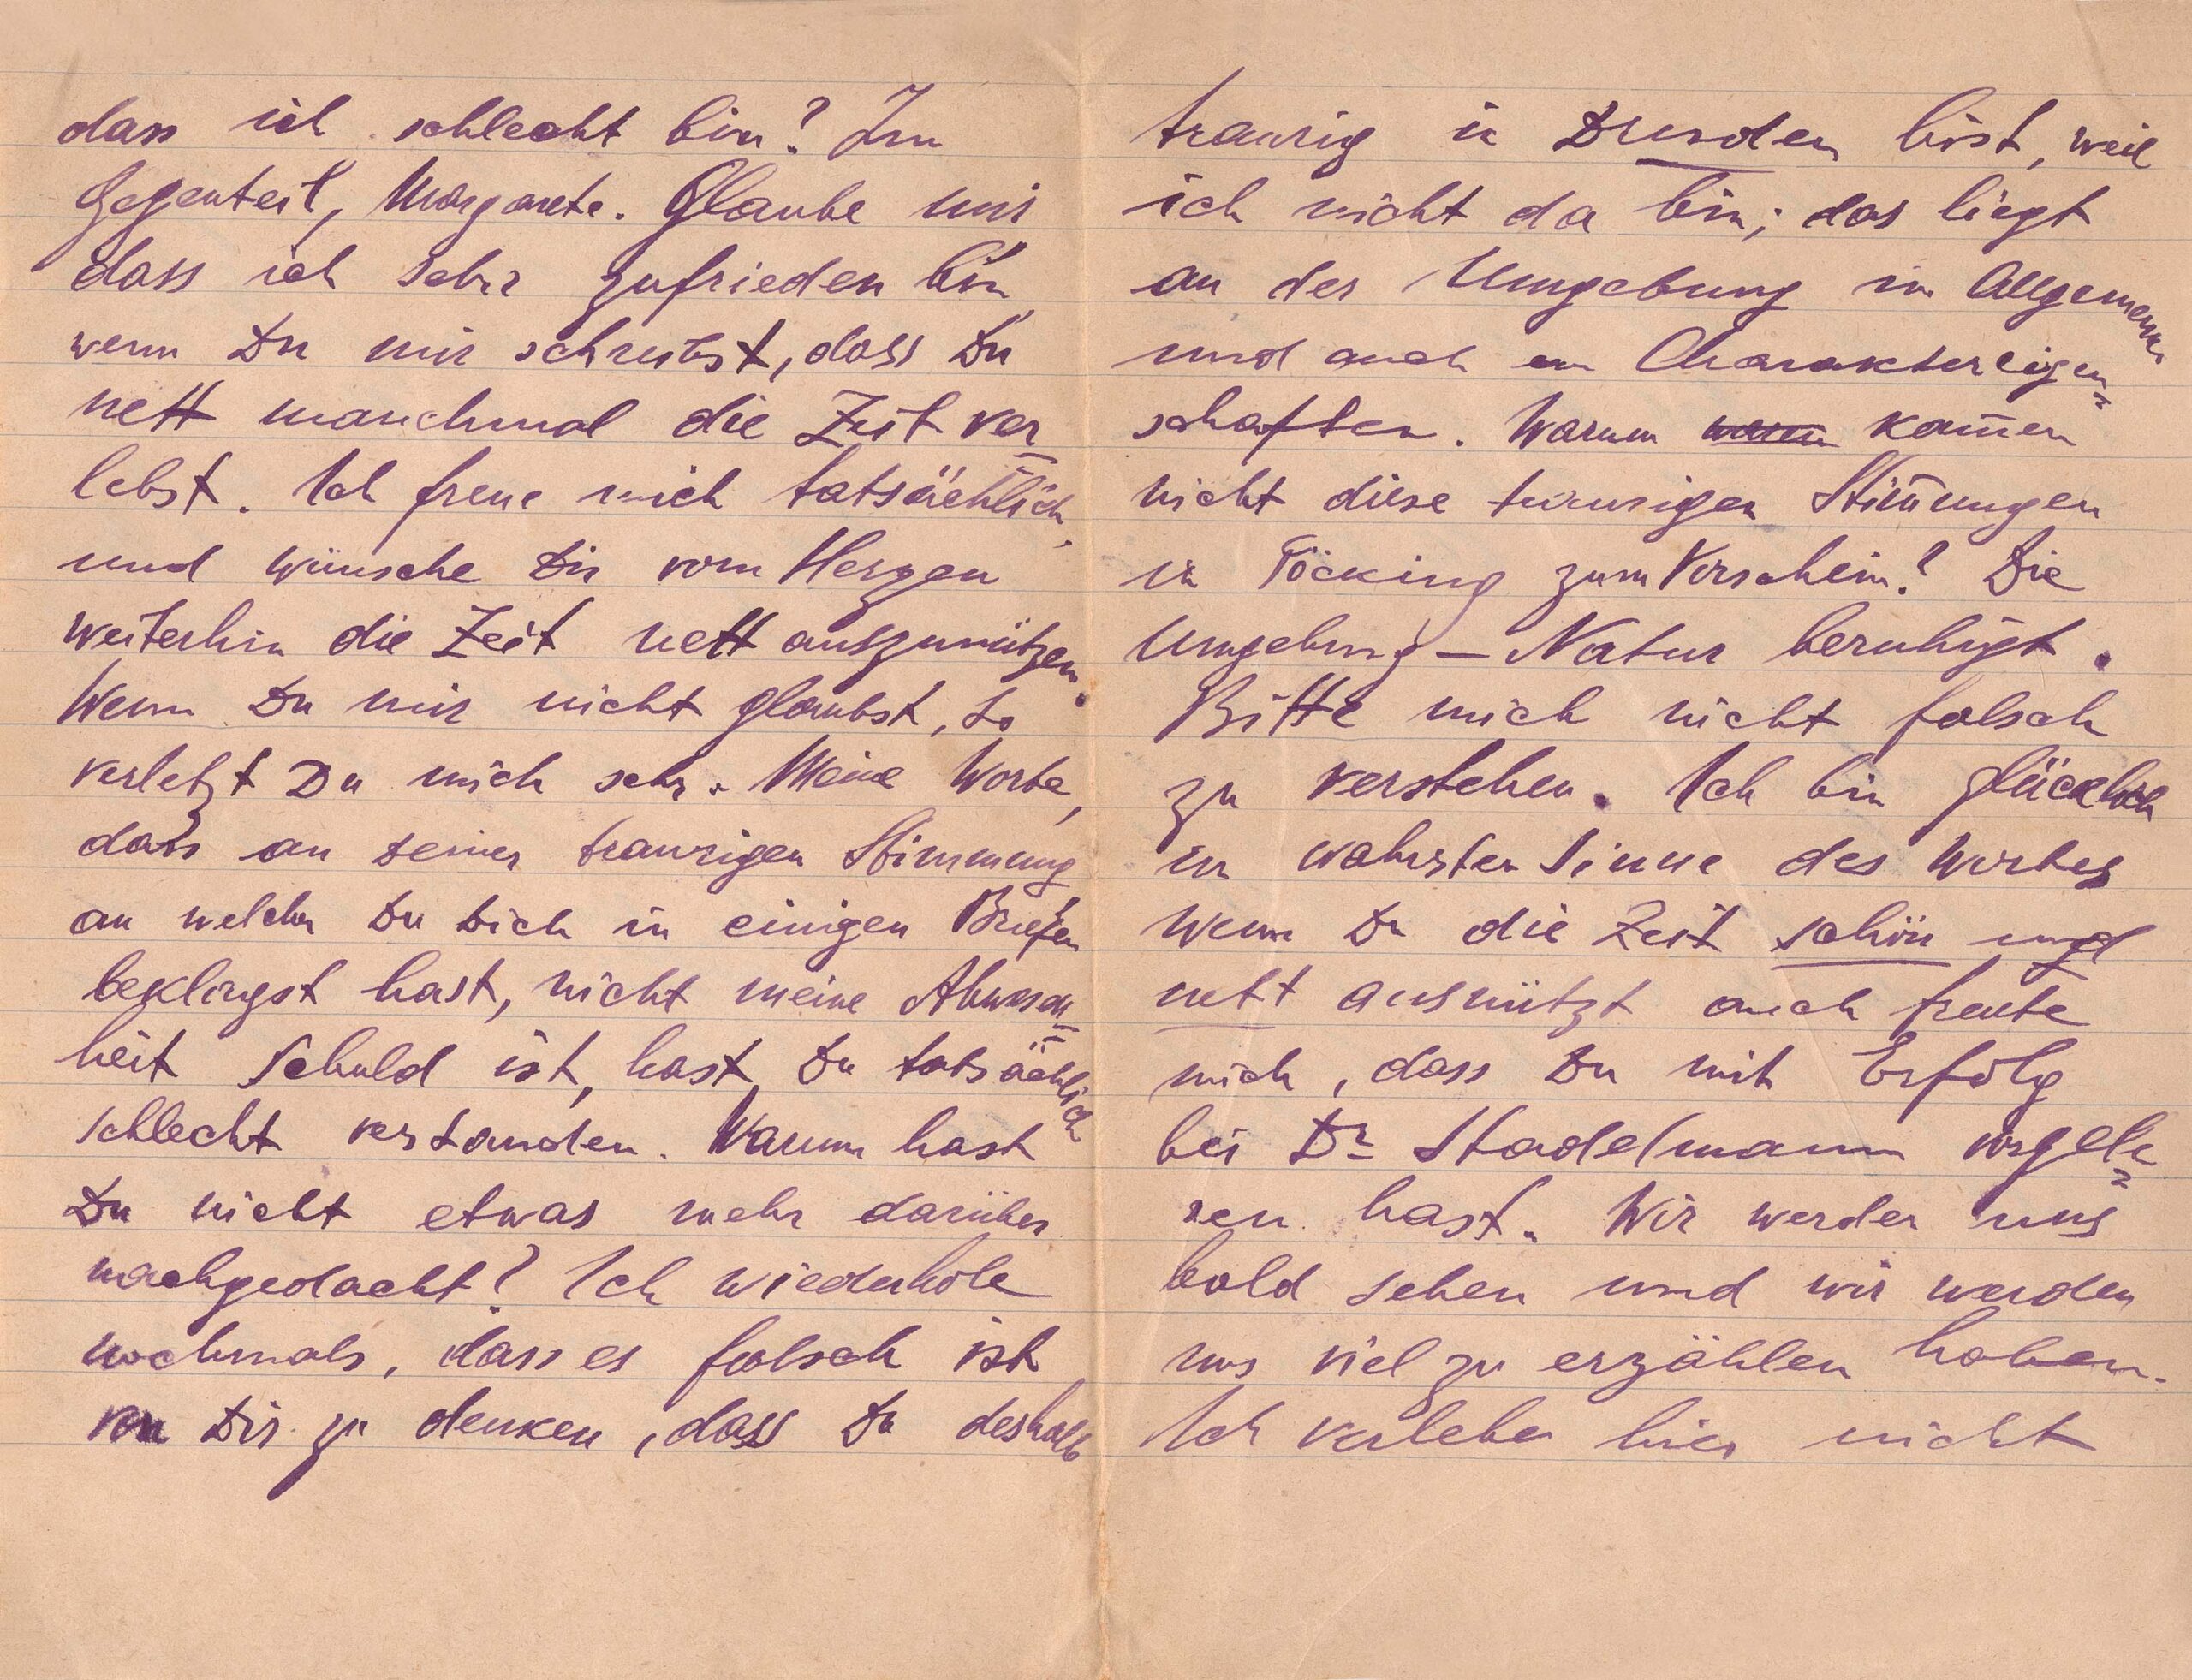 dass ich schlecht bin? Im
Gegenteil, Margarete. Glaube mir,
dass ich sehr zufrieden bin,
wenn Du mir schreibst, dass Du
nett manchmal die Zeit ver=
lebst. Ich freue mich tatsächlich,
und wünsche Dir vom Herzen
weiterhin die Zeit nett auszunützen.
Wenn Du mir nicht glaubst, so
verletzt Du mich sehr. Meine Worte,
dass an seiner traurigen Stimmung
an welcher Du Dich in einigen Briefen
beklagst hast, nicht meine Abwesen=
heit Schuld ist, hast Du tatsächlich
schlecht verstanden. Warum hast
Du nicht etwas mehr darüber
nachgedacht? Ich wiederhole
nochmals, dass es falsch ist
von Dir zu denken, dass Du deshalb
traurig in Dresden bist, weil
ich nicht da bin; das liegt
an der Umgebung im Allgemeinen
und auch an Charaktereigen=
schaften. Warum waren kam̄en
nicht diese traurigen Stim̄ungen
in Pöcking zum Vorschein? Die
Umgebung – Natur beruhigt.
Bitte mich nicht falsch
zu verstehen. Ich bin glücklich
im wahrsten Sinne des Wortes
wenn Du die Zeit schön und
nett ausnützt auch freute
mich, dass Du mit Erfolg
bei Dr Stadelmann vorgele=
sen hast. Wir werden uns
bald sehen und wir werden
uns viel zu erzählen haben.
Ich verlebe hier nicht